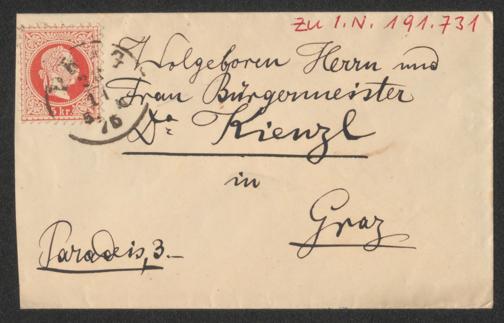 ZU I.N. 191.731
Wolgeboren Herrn und
Frau Bürgermeister
Dr Kienzl
in
Graz
Paradeis, 3.
5 kr.
76